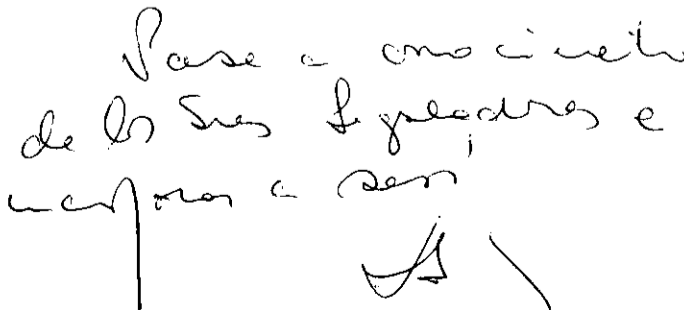 Pase a conocimiento
de los Sres Legisladores e
incorporar a sesi